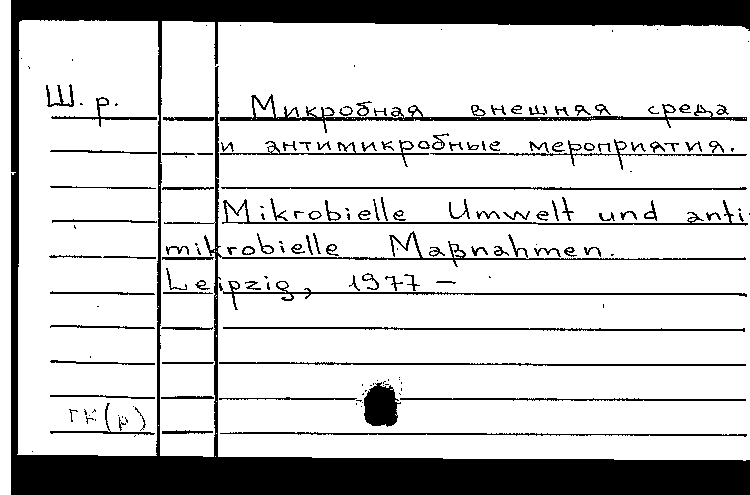 Ш. р.
Микробная внешняя среда
и антимикробные мероприятия.
Mikrobielle Umwelt und anti-
mikrobielle Maßnahmen.
Leipzig, 1977 —
ГК(р)